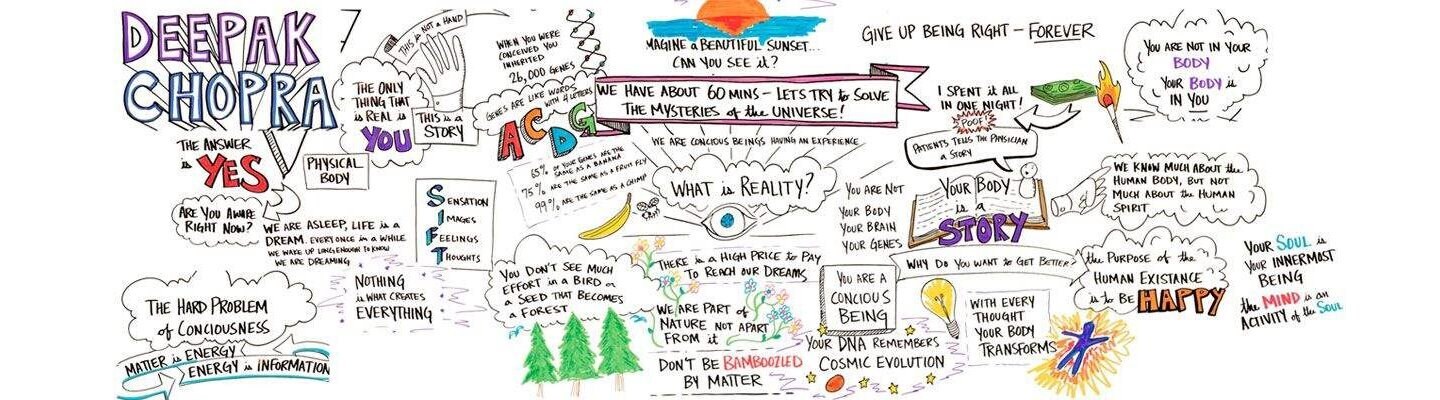 DEEPAK
CHOPRA
THE ANSWER
is YES
ARE YOU AWARE
RIGHT NOW?
PHYSICAL
BODY
THE ONLY
THING THAT
is REAL is
YOU
THIS is NOT a HAND
THIS is A
STORY
WE ARE ASLEEP, LIFE is a
DREAM. EVERY ONCE in a WHILE
WE WAKE UP LONG ENOUGH TO KNOW
WE ARE DREAMING
THE HARD PROBLEM
of CONCIOUSNESS
MATTER is ENERGY
ENERGY is INFORMATION
NOTHING
is WHAT CREATES
EVERYTHING
SENSATION
IMAGES
FEELINGS
THOUGHTS
WHEN YOU WERE
CONCEIVED YOU
INHERITED
26,000 GENES
GENES ARE LIKE WORDS
WITH 4 LETTERS
ACDG
65% OF YOUR GENES ARE THE
SAME AS A BANANA
75% ARE THE SAME AS A FRUIT FLY
99% ARE THE SAME AS A CHIMP
YOU DON'T SEE MUCH
EFFORT in a BIRD or
a SEED THAT BECOMES
a FOREST
MAGINE a BEAUTIFUL SUNSET...
CAN YOU SEE iT?
WE HAVE ABOUT 60 MINS – LETS TRY to SOLVE
THE MYSTERIES of the UNIVERSE!
WE ARE CONCIOUS BEINGS HAVING AN EXPERIENCE
WHAT is REALITY?
THERE is a HIGH PRICE to PAY
TO REACH OUR DREAMS
WE ARE PART of
NATURE NOT APART
FROM it
DON'T BE BAMBOOZLED
BY MATTER
YOU ARE NOT
YOUR BODY
YOUR BRAIN
YOUR GENES
YOU ARE A
CONCIOUS
BEING
YOUR DNA REMEMBERS
COSMIC EVOLUTION
GIVE UP BEING RIGHT – FOREVER
I SPENT it ALL
IN ONE NIGHT!
POOF!
PATIENTS TELLS THE PHYSICIAN
a STORY
YOUR BODY
is a
STORY
WHY DO YOU WANT to GET BETTER?
WITH EVERY
THOUGHT
YOUR BODY
TRANSFORMS
YOU ARE NOT IN YOUR
BODY
YOUR BODY is
IN YOU
WE KNOW MUCH ABOUT the
HUMAN BODY, BUT NOT
MUCH ABOUT the HUMAN
SPIRIT.
the PURPOSE of the
HUMAN EXISTANCE
is to BE HAPPY
YOUR SOUL is
YOUR INNERMOST
BEING
the MIND is an
ACTIVITY of the SOUL